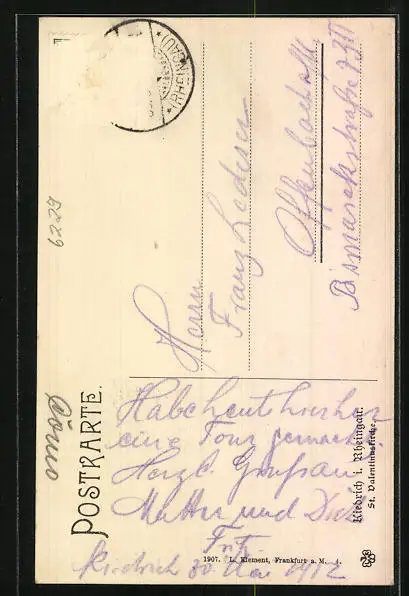 POSTKARTE.
6229
(RHEINGAU)
Herrn
Franz Lederer
Offenbach a/M.
Bismarckstraße 73 III
Hab heut hierher
eine Tour gemacht.
Herzl. Gruß an
Mutter und Dich
Fritz
Kiedrich 30 Mai 1912
Kiedrich i. Rheingau.
St. Valentinuskirche.
1907. L. Klement, Frankfurt a. M.